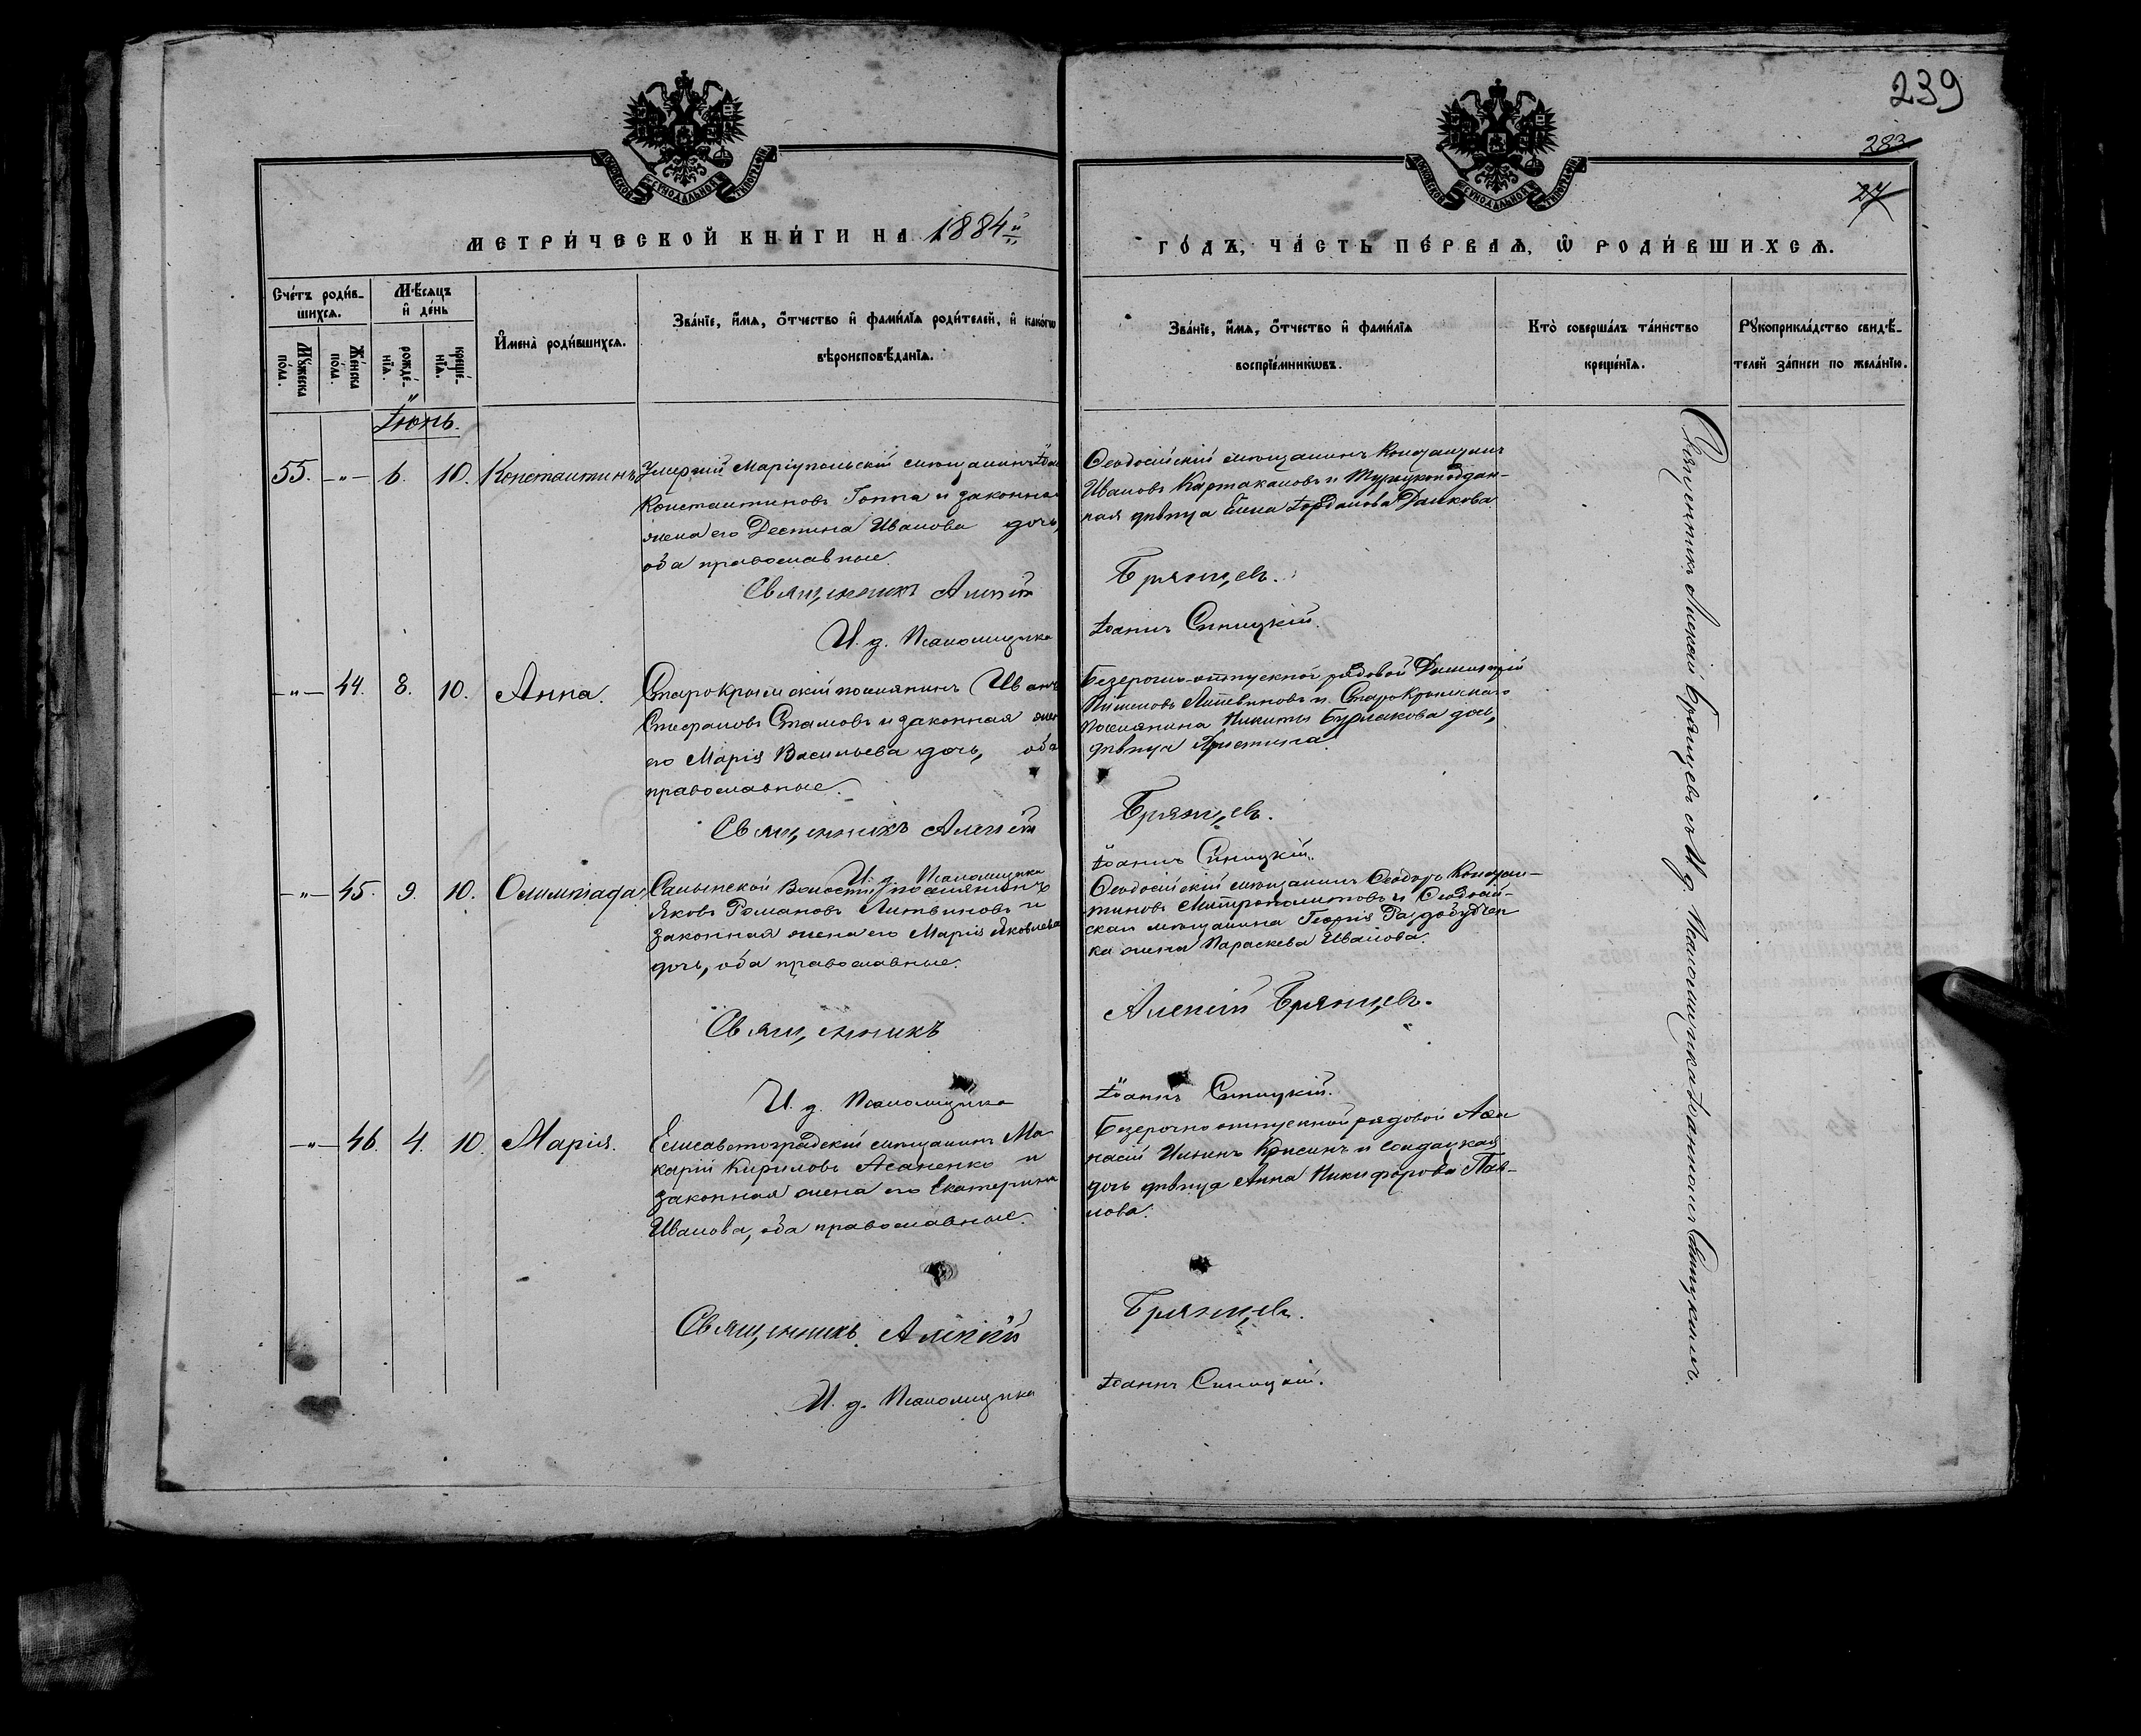 239
283
27
МЕТРИ́ЧЕСКОЙ КНИ́ГИ НА 1884й
ГО́ДЪ, ЧА́СТЬ ПЕ́РВАѦ, Ѡ РОДИ́ВШИХСѦ.
Сче́тъ роди́в-
шихсѧ.
Мꙋ́жеска
по́ла.
Же́нска
по́ла.
Мѣ́сѧцъ
и҆ де́нь
рожде́-
нїѧ.
креще́-
нїѧ.
И҆мена̀ роди́вшихсѧ.
Зва́нїе, и҆́мѧ, о҆́тчество и҆ фами́лїѧ роди́телей, и҆ како́гѡ
вѣроисповѣ́данїѧ.
Зва́нїе, и҆́мѧ, о҆́тчество и҆ фами́лїѧ
воспрїе́мникѡвъ.
Кто̀ соверша́лъ та́инство
креще́нїѧ.
Рꙋкоприкла́дство свидѣ́-
телей за́писи по жела́нїю.
Іюнь.
55. —"— 6. 10. Константинъ
Маріупольскій мѣщанинъ
Константиновъ Гоппа и законная
жена его Деспина Иванова дочь,
оба православные.
Священникъ Алексій
И. д. Псаломщика
Ѳеодосійскій мѣщанинъ Константинъ
Ивановъ Картакаповъ и Турецкоподдан-
ная дѣвица Елена Іорданова Данкова
Брянцевъ.
Іоаннъ Синицкій.
—"— 44. 8. 10. Анна.
Старокрымскій поселянинъ Иванъ
Стефановъ Стамовъ и законная жена
его Марія Васильева дочь, оба
православные.
Священникъ Алексій
И. д. Псаломщика
Безсрочно-отпускной рядовой Димитрій
Пименовъ Литвиновъ и Старо Крымскаго
поселянина Никиты Бурлакова дочь,
дѣвица Христина.
Брянцевъ.
Іоаннъ Синицкій.
—"— 45. 9. 10. Олимпіада.
Салынской Волости поселянинъ
Яковъ Романовъ Литвиновъ и
законная жена его Марія Яковлева
дочь, оба православные.
Священникъ
И. д. Псаломщика
Ѳеодосійскій мѣщанинъ Ѳеодоръ Констан-
тиновъ Митрополитовъ и Ѳеодосій-
скаго мѣщанина Георгія
жена Параскева Иванова.
Алексій Брянцевъ.
Іоаннъ Синицкій.
—"— 46. 4. 10. Марія.
Елисаветоградскій мѣщанинъ Ма-
карій Кириловъ Асаненко и
законная жена его Екатерина
Иванова, оба православные.
Священникъ Алексій
И. д. Псаломщика
Безсрочно отпускной рядовой Аѳа-
насій Ильинъ и солдатская
дочь дѣвица Анна Никифорова Пав-
лова.
Брянцевъ.
Іоаннъ Синицкій.
Священникъ Алексій Брянцевъ съ И. д. Псаломщика Іоанномъ Синицкимъ.